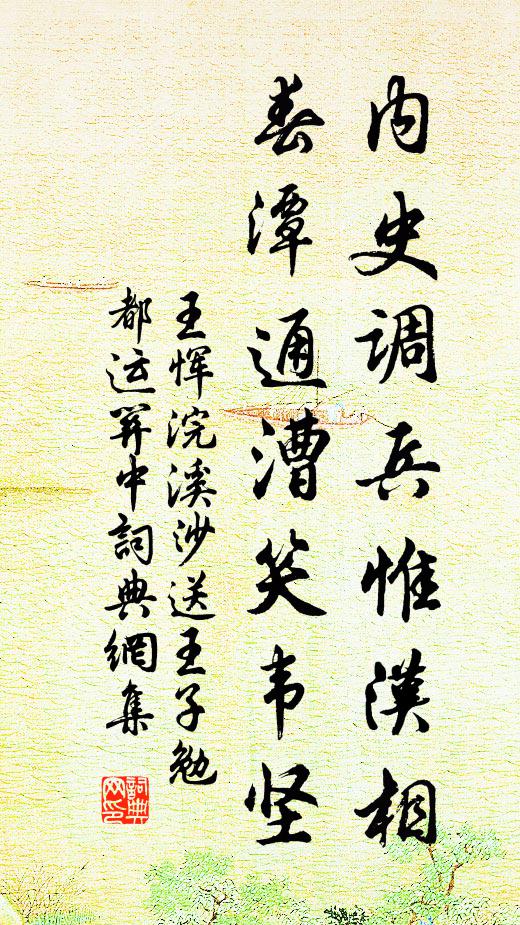 内史調兵惟漢相
春潭通漕笑韦坚
王恽浣溪沙送王子勉
都运关中詞典網集
詞典网印